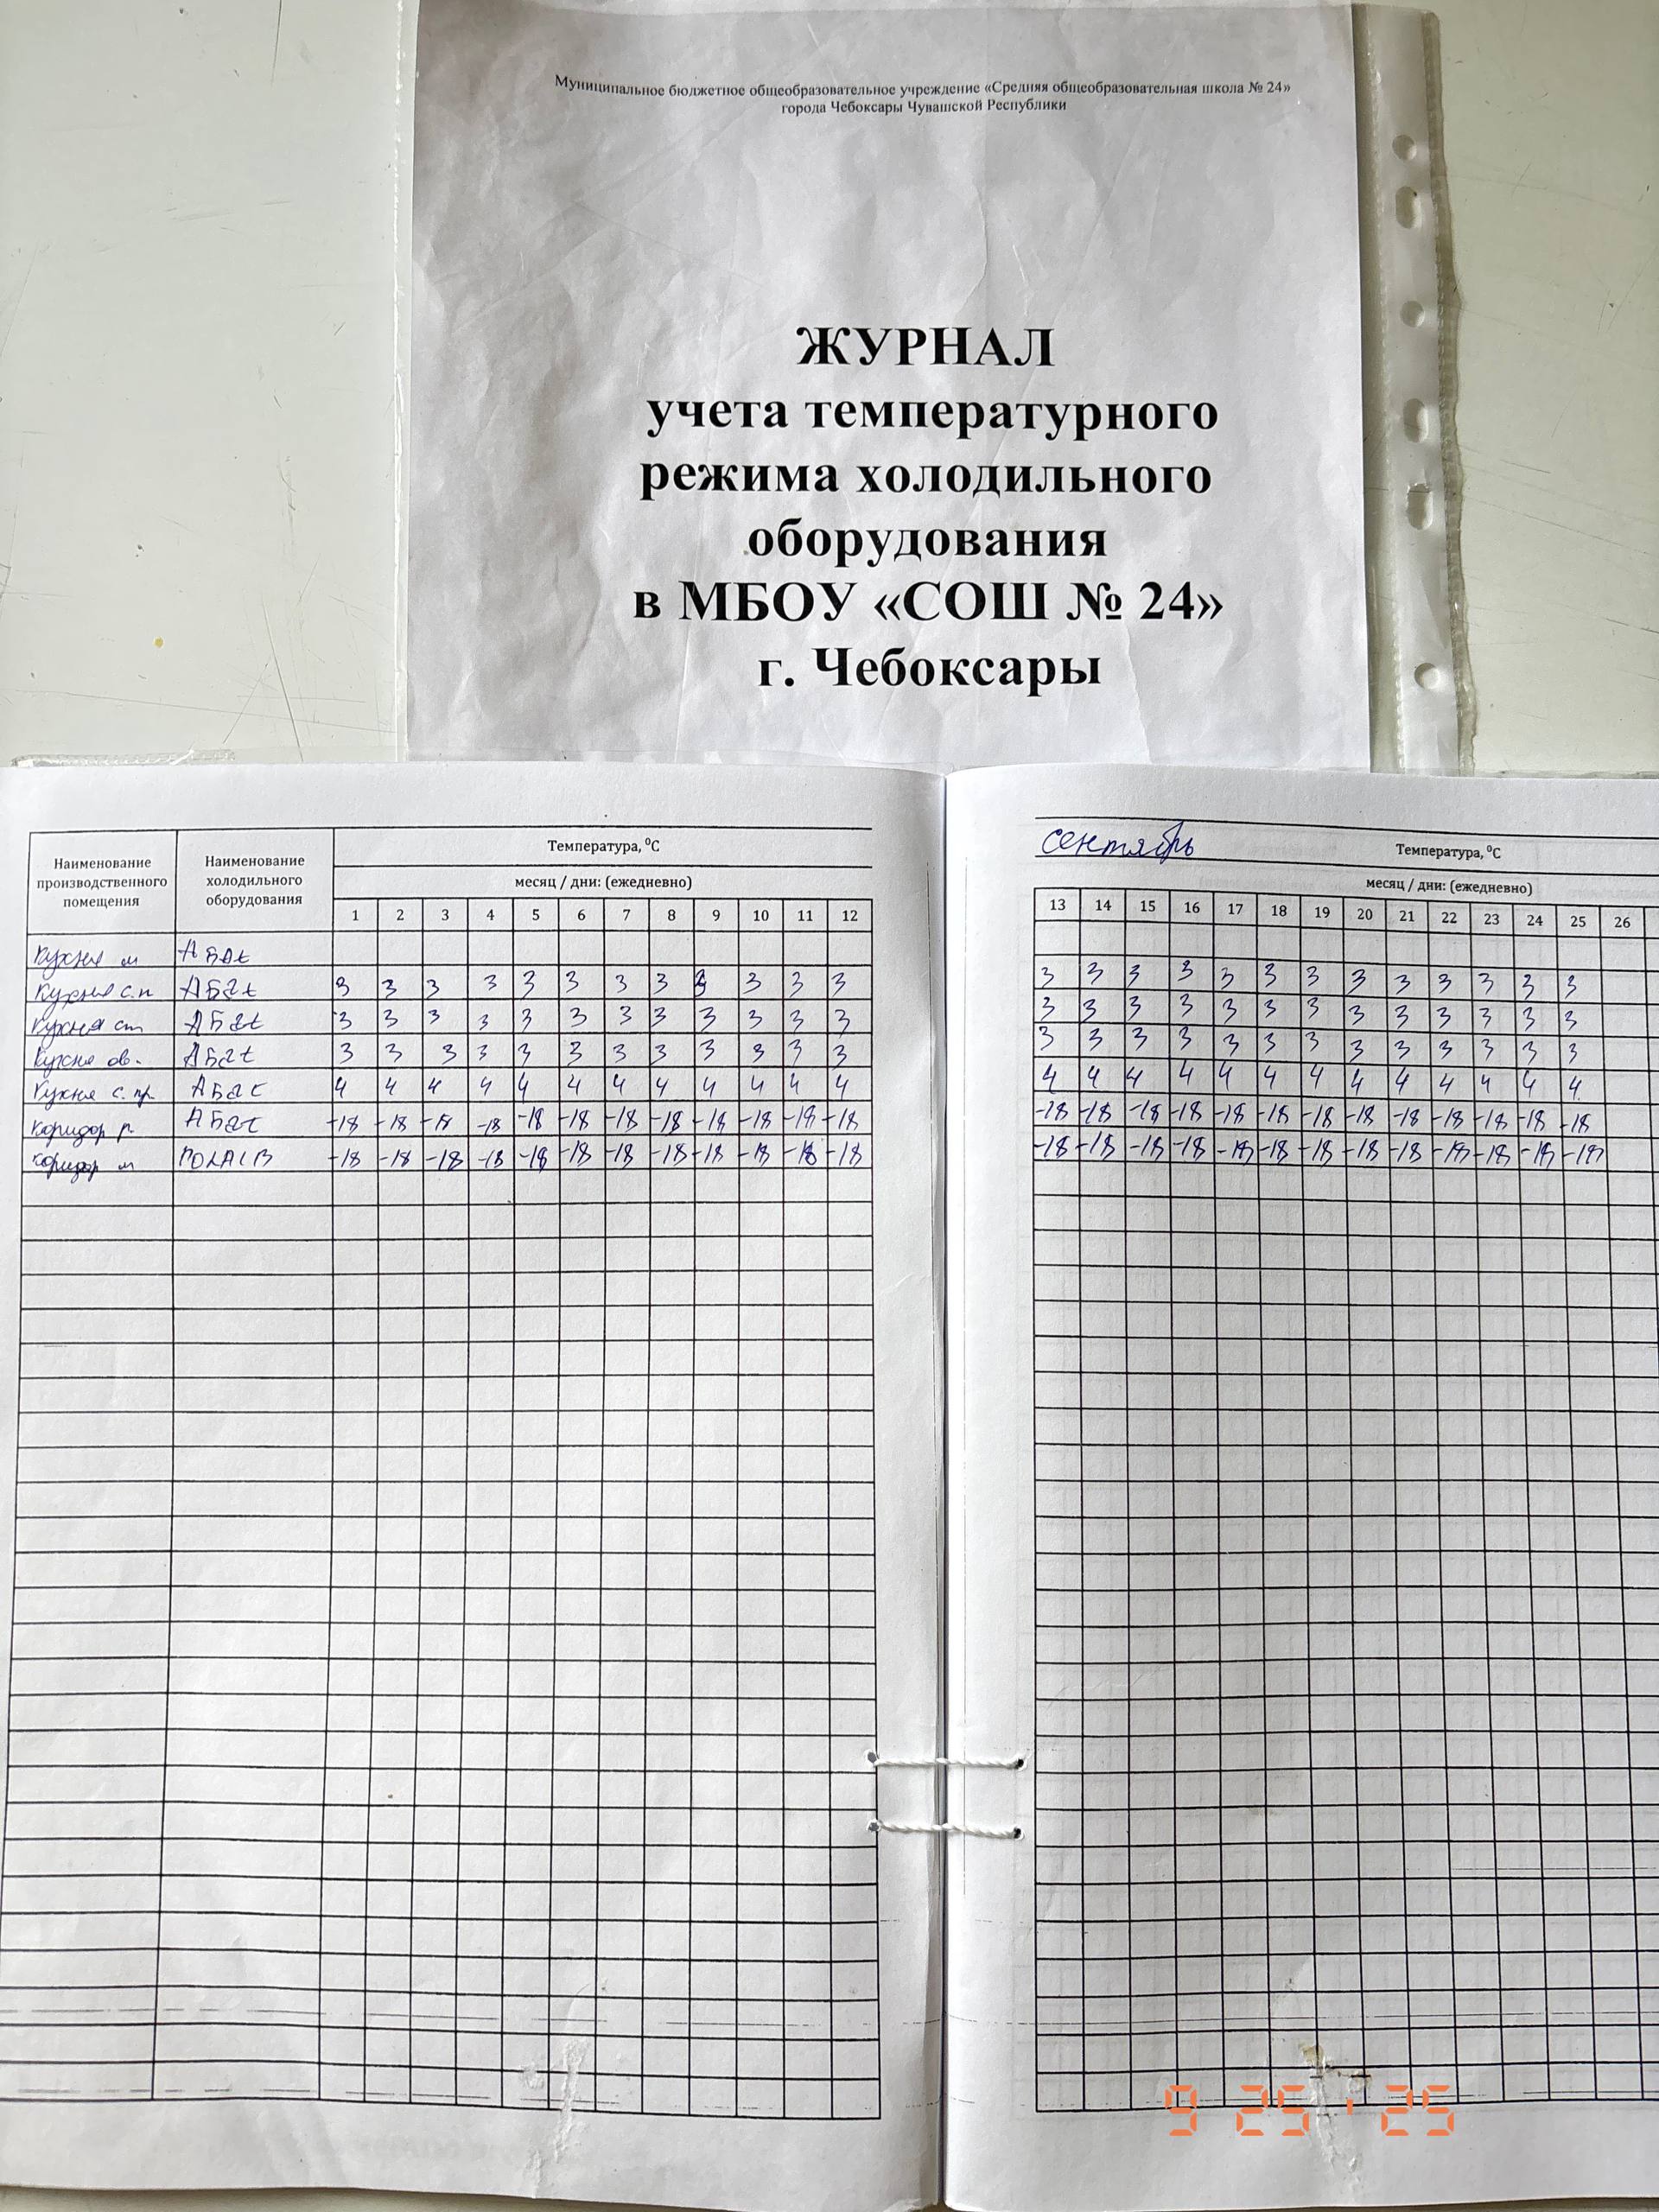 Муниципальное бюджетное общеобразовательное учреждение «Средняя общеобразовательная школа № 24»
города Чебоксары Чувашской Республики
ЖУРНАЛ
учета температурного
режима холодильного
оборудования
в МБОУ «СОШ № 24»
г. Чебоксары
Наименование производственного помещения
Наименование холодильного оборудования
Температура, ⁰С
месяц / дни: (ежедневно)
1 2 3 4 5 6 7 8 9 10 11 12
Кухня м
Кухня с.п 3 3 3 3 3 3 3 3 3 3 3 3
Кухня ст 3 3 3 3 3 3 3 3 3 3 3 3
Кухня ов. 3 3 3 3 3 3 3 3 3 3 3 3
Кухня с. пр. 4 4 4 4 4 4 4 4 4 4 4 4
коридор р -18 -18 -18 -18 -18 -18 -18 -18 -18 -18 -18 -18
коридор м -18 -18 -18 -18 -18 -18 -18 -18 -18 -18 -18 -18
сентябрь
Температура, ⁰С
месяц / дни: (ежедневно)
13 14 15 16 17 18 19 20 21 22 23 24 25 26
3 3 3 3 3 3 3 3 3 3 3 3 3
3 3 3 3 3 3 3 3 3 3 3 3 3
3 3 3 3 3 3 3 3 3 3 3 3 3
4 4 4 4 4 4 4 4 4 4 4 4 4
-18 -18 -18 -18 -18 -18 -18 -18 -18 -18 -18 -18 -18
-18 -18 -18 -18 -18 -18 -18 -18 -18 -18 -18 -18 -18
9 25 ' 25